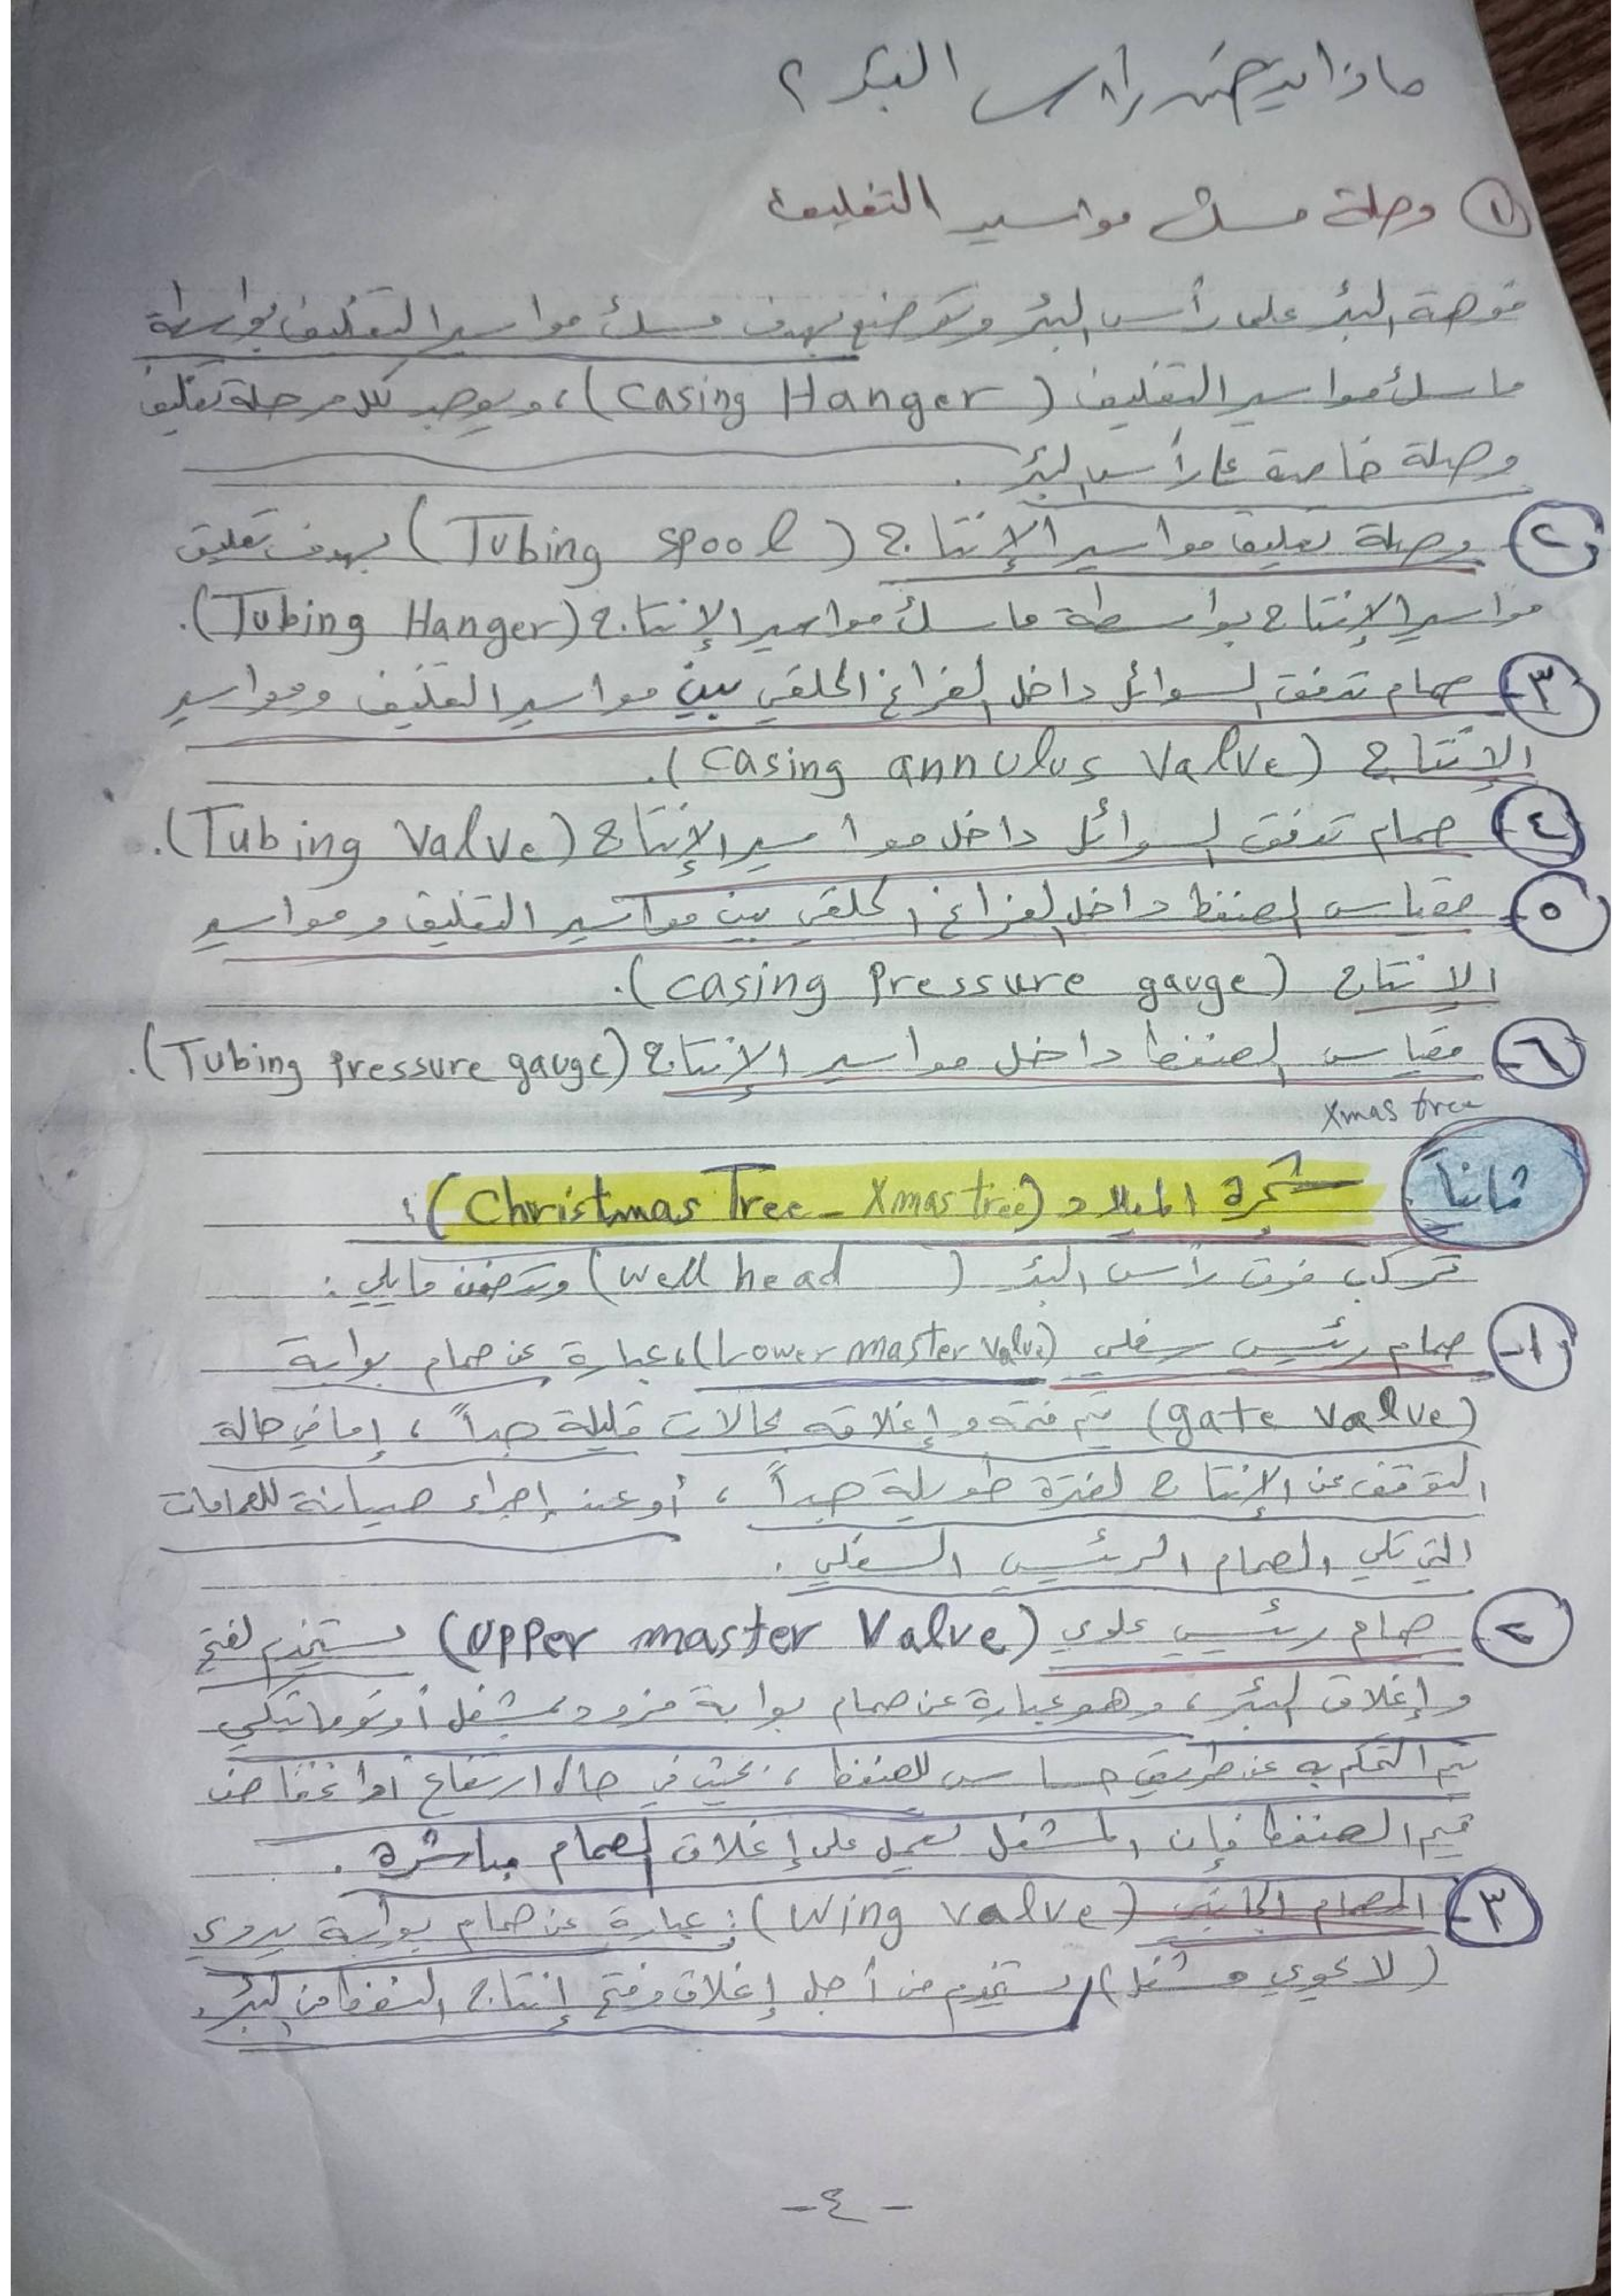 ماذا يتضمن رأس البئر ؟
① وصلة مسك مواسير التغليف
فوهة البئر على رأس البئر وتوضع بهدف مسك مواسير التغليف بواسطة
ماسك مواسير التغليف (Casing Hanger)، ويوجد لكل مرحلة تغليف
وصلة خاصة على رأس البئر .
٢- وصلة تعليق مواسير الإنتاج (Tubing Spool) بهدف تعليق
مواسير الإنتاج بواسطة ماسك مواسير الإنتاج (Tubing Hanger).
٣- صمام تدفق السوائل داخل الفراغ الحلقي بين مواسير التغليف ومواسير
الإنتاج (Casing annulus Valve).
٤- صمام تدفق السوائل داخل مواسير الإنتاج (Tubing Valve).
٥- مقياس الضغط داخل الفراغ الحلقي بين مواسير التغليف ومواسير
الانتاج (casing Pressure gauge).
٦- مقياس الضغط داخل مواسير الإنتاج (Tubing Pressure gauge).
Xmas tree
ثانياً شجرة الميلاد (Christmas Tree - Xmas tree) :
تركب فوق رأس البئر (Well head) وتتضمن مايلي :
١- صمام رئيسي سفلي (Lower master valve)، عبارة عن صمام بوابة
(gate valve) يتم فتحه وإغلاقه بحالات قليلة جداً ، إما في حالة
التوقف عن الإنتاج لفترة طويلة جداً ، أو عند إجراء صيانة للصمامات
التي تلي الصمام الرئيسي السفلي .
٢ صمام رئيسي علوي (Upper master Valve) يستخدم لفتح
وإغلاق البئر ، وهو عبارة عن صمام بوابة مزود بمشغل أوتوماتيكي
يتم التحكم به عن طريق حساس للضغط ، بحيث في حال ارتفاع أو انخفاض
قيم الضغط فإن المشغل يعمل على إغلاق الصمام مباشرة .
٣- الصمام الجانبي (Wing valve) : عبارة عن صمام بوابة يدوي
(لا يحوي مشغل) يستخدم من أجل إغلاق وفتح إنتاج النفط من البئر.
- ٤ -